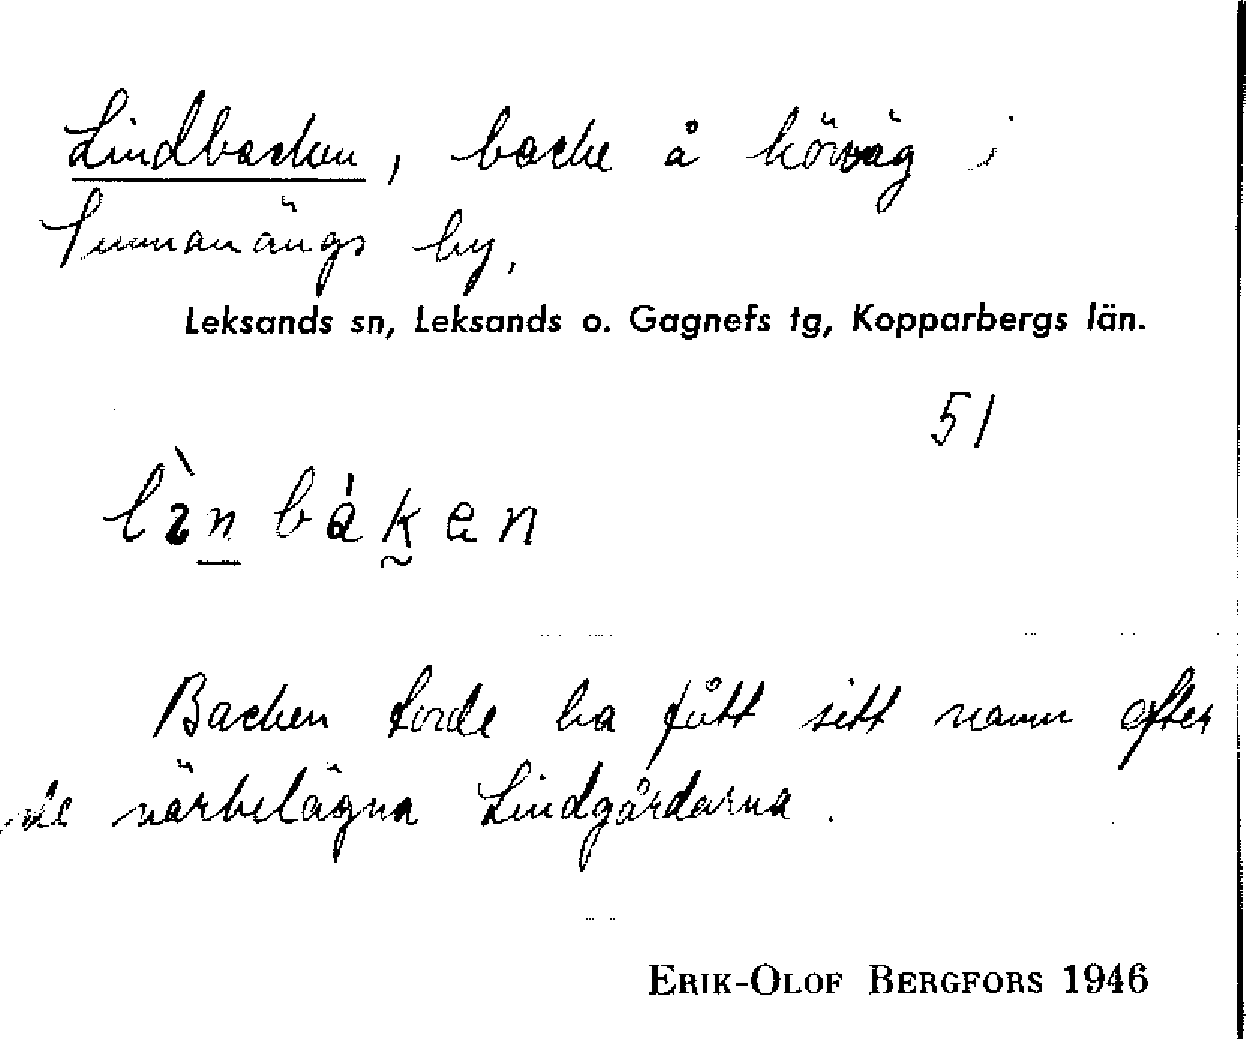 Lindbacken, backe å körväg i
Sunnanängs by,
Leksands sn, Leksands o. Gagnefs tg, Kopparbergs län.
51
Backen torde ha fått sitt namn efter
de närbelägna Lindgårdarna.
ERIK-OLOF BERGFORS 1946